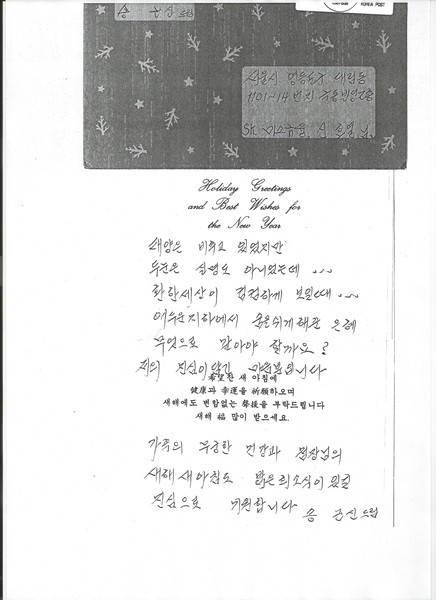 KOREA POST
송 드림
서울시 영등포구 대림동
1101-14 번지
Holiday Greetings
and Best Wishes for
the New Year
태양은 비추고 있었지만
아니었는데 …
환한세상이 컴컴하게 보일때 …
어두운지하에서 은혜
무엇으로 갚아야 할까요?
저의 진심이 담긴 입니다
希望찬 새 아침에
健康과 幸運을 祈願하오며
새해에도 변함없는 聲援을 부탁드립니다
새해 福 많이 받으세요.
가족의 무궁한 건강과 점장님의
새해 새아침도 밝은 희소식이 있길
진심으로 기원합니다
송 드림